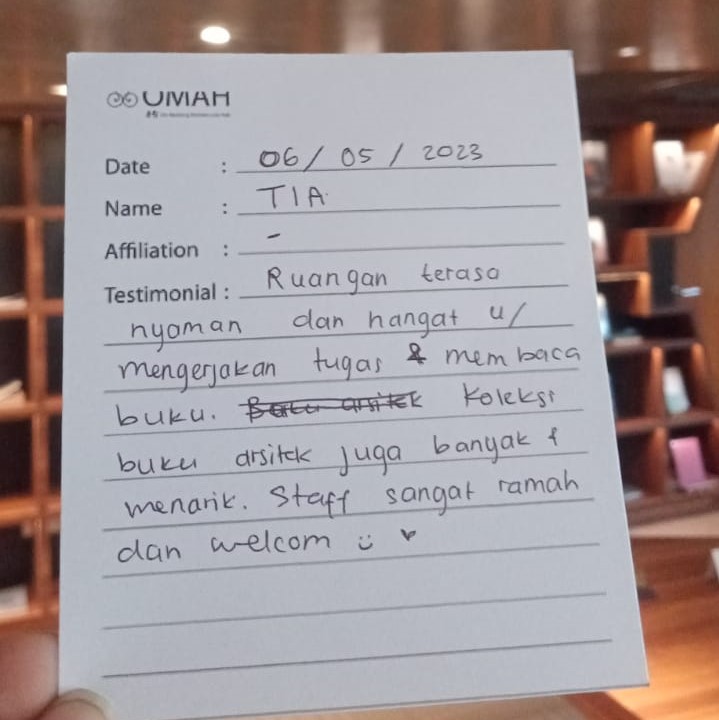 UMAH
Date : 06 / 05 / 2023
Name : TIA
Affiliation : -
Testimonial : Ruangan terasa
nyaman dan hangat u/
mengerjakan tugas & membaca
buku. Koleksi
buku arsitek juga banyak &
menarik. Staff sangat ramah
dan welcom